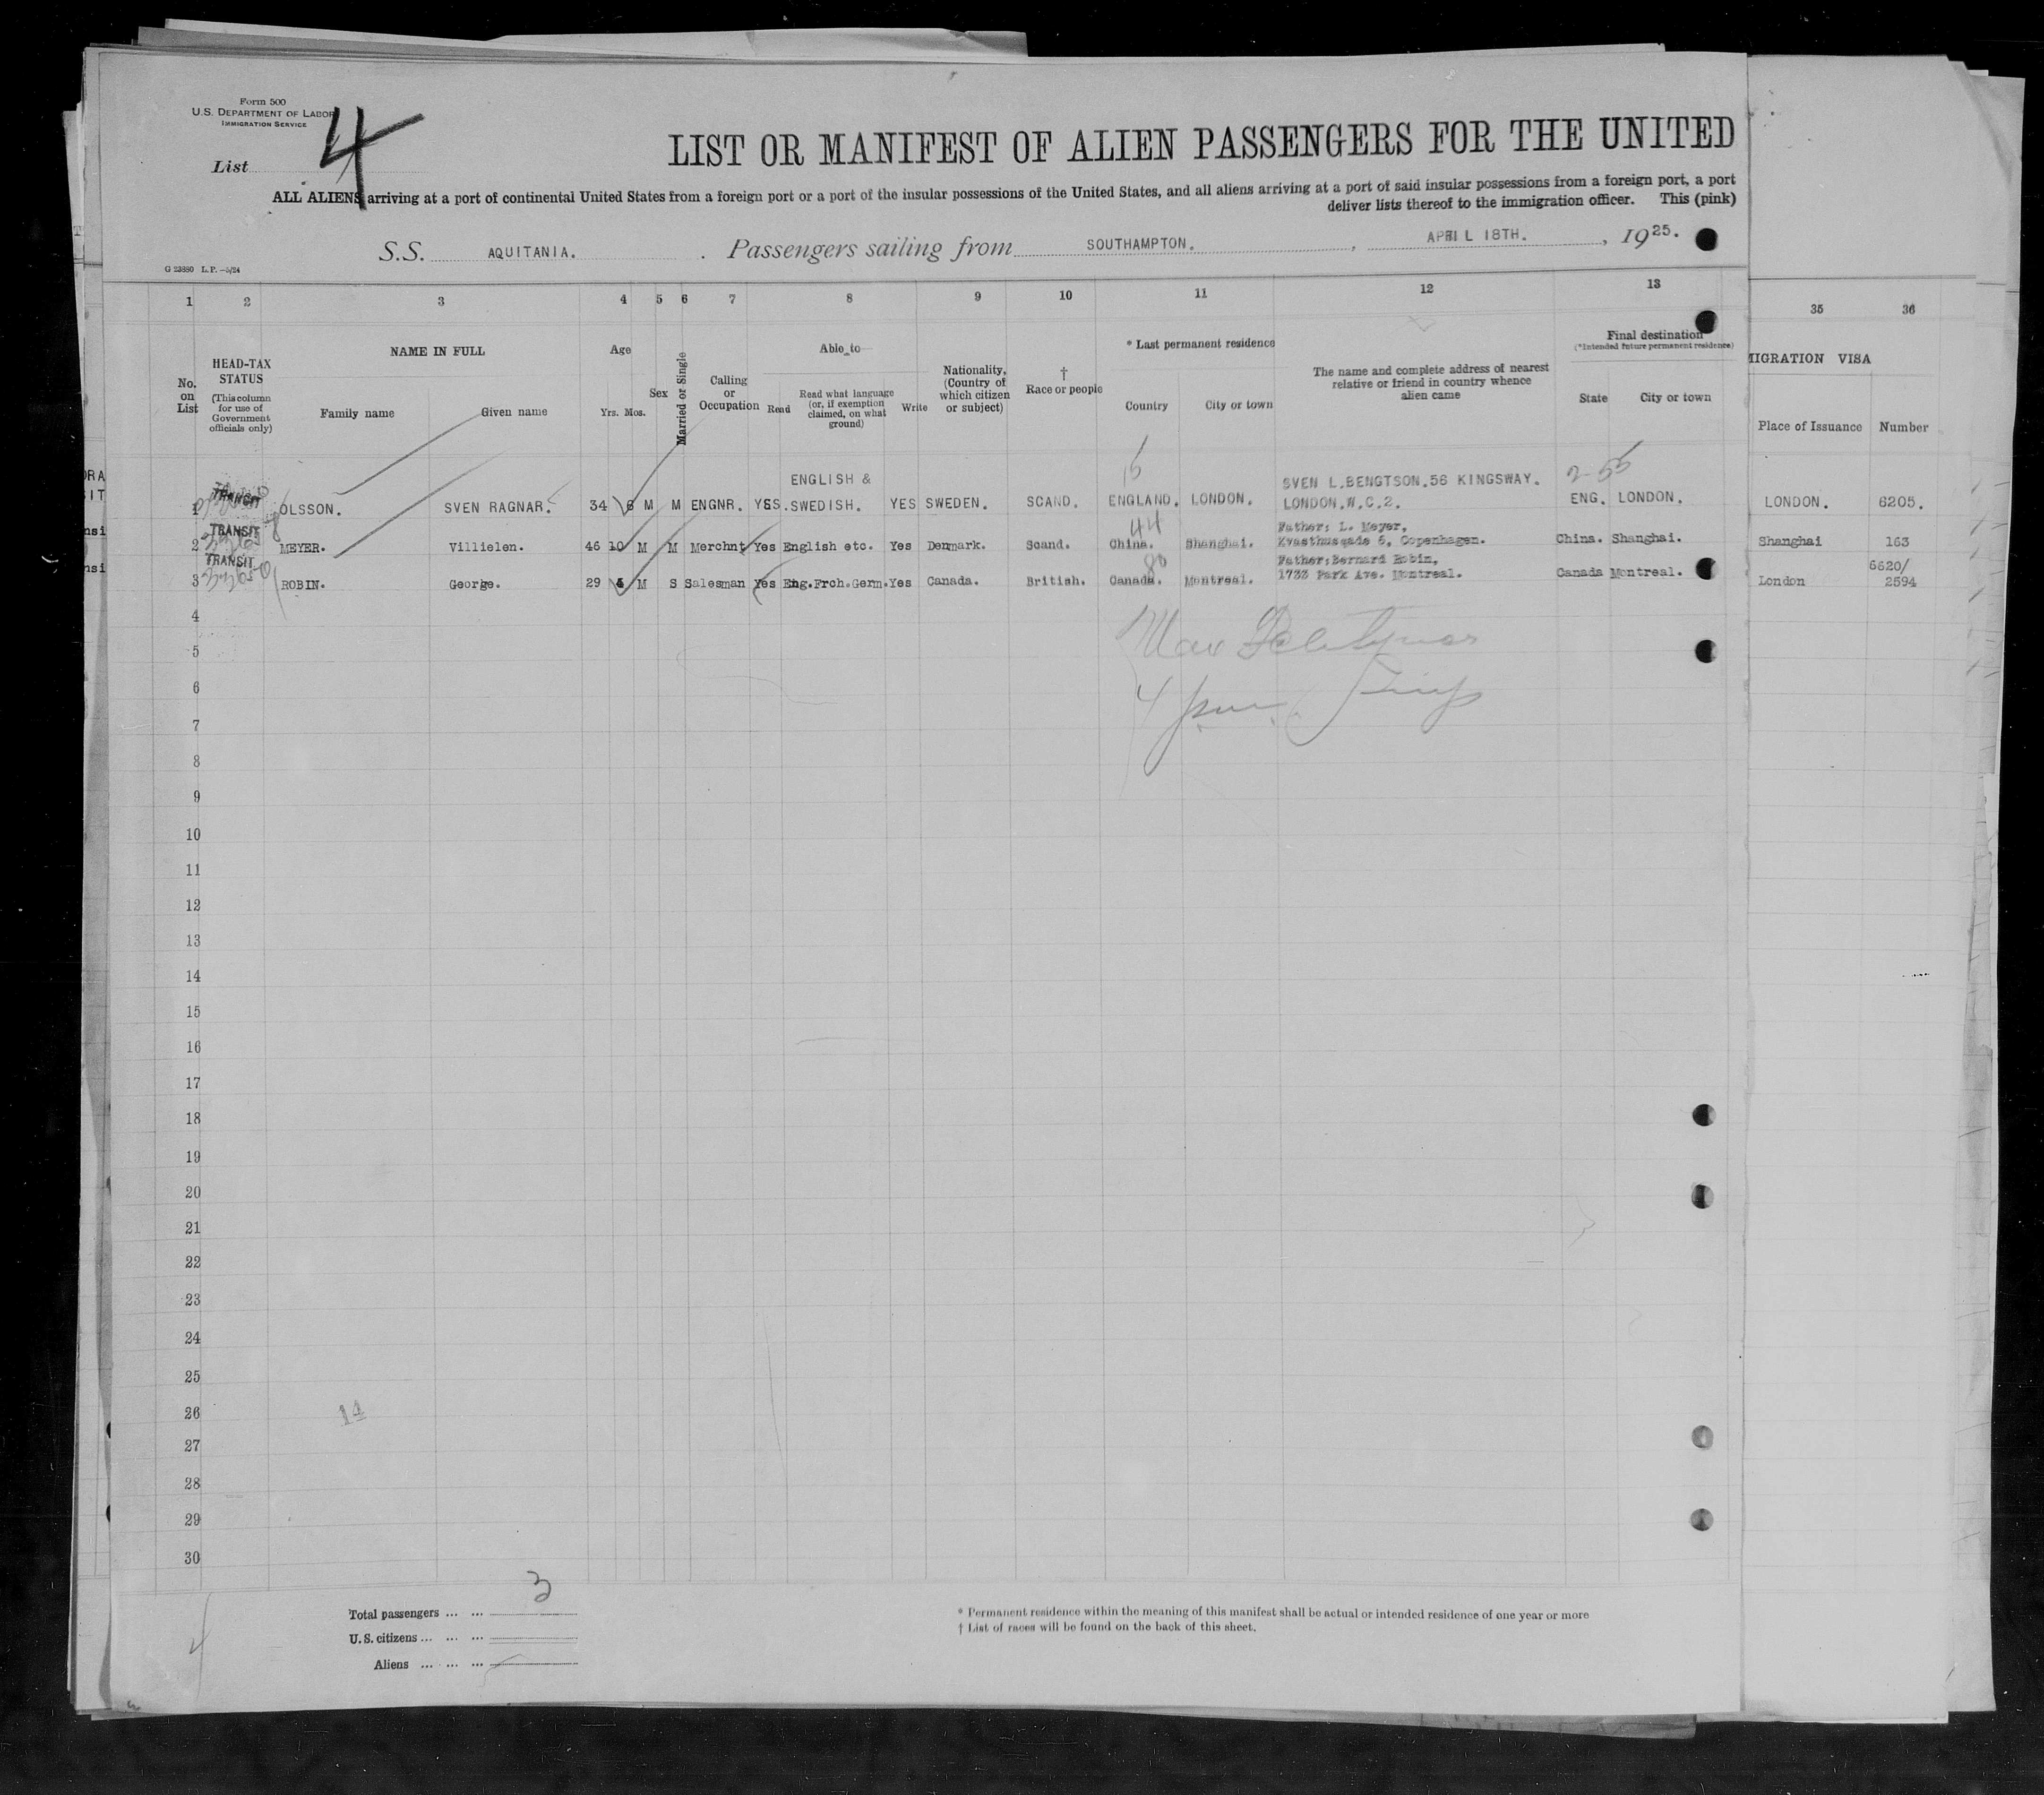 Form 500
U.S. DEPARTMENT OF LABOR
IMMIGRATION SERVICE
List 4
LIST OR MANIFEST OF ALIEN PASSENGERS FOR THE UNITED
ALL ALIENS arriving at a port of continental United States from a foreign port or a port of the insular possessions of the United States, and all aliens arriving at a port of said insular possessions from a foreign port, a port
deliver lists thereof to the immigration officer. This (pink)
S.S. AQUITANIA. Passengers sailing from SOUTHAMPTON. , APRIL 18TH. , 1925.
G 23880 L.P.—5/24
1 2 3 4 5 6 7 8 9 10 11 12 13 35 36
No. on List
HEAD-TAX STATUS
(This column for use of Government officials only)
NAME IN FULL
Family name Given name
Age
Yrs. Mos.
Sex
Married or Single
Calling or Occupation
Able to
Read
Read what language (or, if exemption claimed, on what ground)
Write
Nationality, (Country of which citizen or subject)
† Race or people
* Last permanent residence
Country City or town
The name and complete address of nearest relative or friend in country whence alien came
Final destination
(*Intended future permanent residence)
State City or town
MIGRATION VISA
Place of Issuance Number
15 2-55
ENGLISH & SVEN L.BENGTSON.56 KINGSWAY.
1 TRANSIT OLSSON. SVEN RAGNAR. 34 6 M M ENGNR. YES. SWEDISH. YES SWEDEN. SCAND. ENGLAND. LONDON. LONDON.W.C.2. ENG. LONDON. LONDON. 6205.
44 Father: L. Meyer,
2 TRANSIT MEYER. Villielen. 46 10 M M Merchnt Yes English etc. Yes Denmark. Scand. China. Shanghai. Kvasthusgade 6, Copenhagen. China. Shanghai. Shanghai 163
80 Father:Bernard Robin,
3 TRANSIT ROBIN. George. 29 M S Salesman Yes Eng.Frch.Germ. Yes Canada. British. Canada. Montreal. 1733 Park Ave. Montreal. Canada Montreal. London 6620/
2594
4
5
6
7
8
9
10
11
12
13
14
15
16
17
18
19
20
21
22
23
24
25
26 14
27
28
29
30
Total passengers ... ... 3
U.S. citizens ... ... ...
Aliens ... ... ...
* Permanent residence within the meaning of this manifest shall be actual or intended residence of one year or more
† List of races will be found on the back of this sheet.